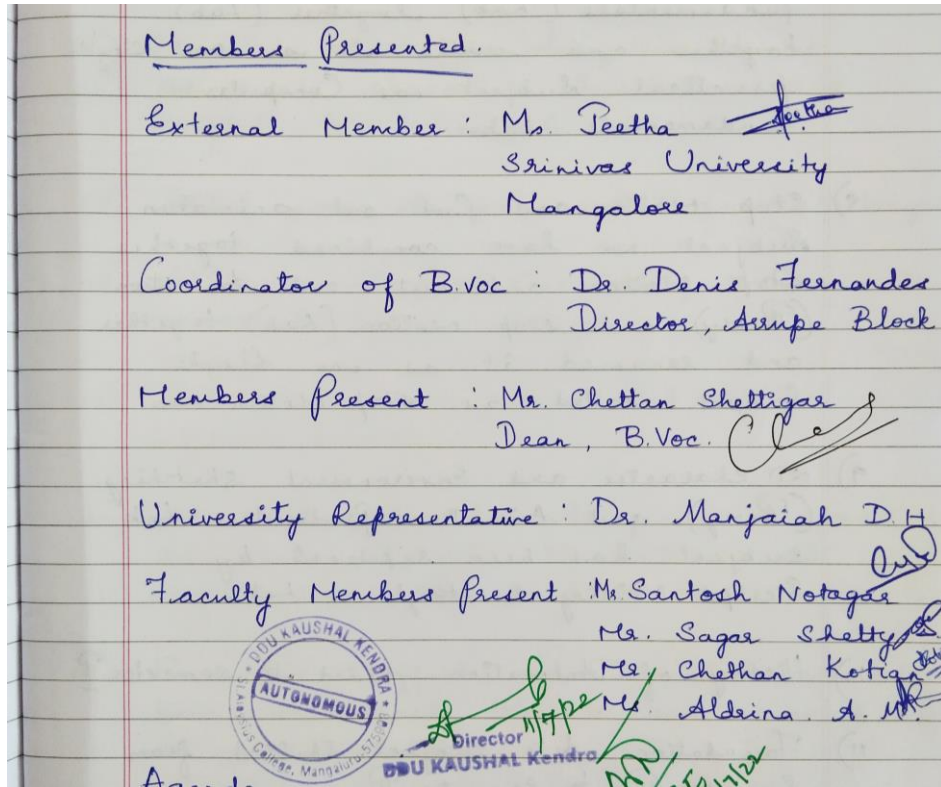 Members Presented.
External Member : Ms. Jeetha Jeetha
Srinivas University
Mangalore
Coordinator of B.voc : Dr. Denis Fernandes
Director, Arrupe Block
Members Present : Mr. Chettan Shettigar
Dean, B.Voc.
University Representative : Dr. Manjaiah D.H
Faculty Members Present : Mr. Santosh Notagar
Mr. Sagar Shetty
Mr. Chethan Kotian
Ms. Aldrina. A. M.
DDU KAUSHAL KENDRA
AUTONOMOUS
St Aloysius College, Mangaluru-575003
11/7/22
Director
DDU KAUSHAL Kendra
Agenda